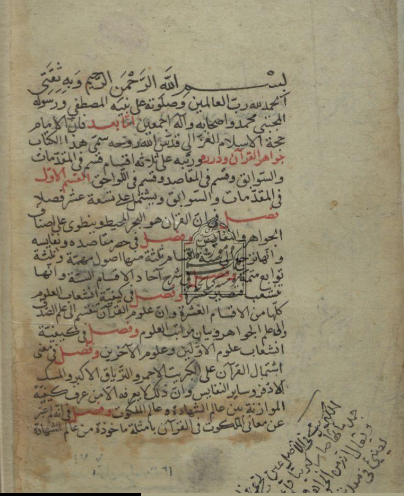 بسم الله الرحمن الرحيم وبه ثقتي
الحمد لله رب العالمين وصلوته على نبيه المصطفى ورسوله
المجتبى محمد واصحابه وآله اجمعين اما بعد فان الامام
حجة الاسلام الغزالي قدس الله روحه سمى هذا الكتاب
جواهر القرآن ودرره ورتبه على ثلاثة اقسام قسم في المقدمات
والسوابق وقسم في المقاصد وقسم في اللواحق القسم الاول
في المقدمات والسوابق ويشتمل على تسعة عشر فصلا
فصل في ان القرآن هو البحر المحيط وينطوي على اصناف
الجواهر والنفايس فصل في حصر مقاصده ونفايسه
وانها ترجع الى ستة اقسام ثلثة منها اصول مهمة وثلثة
توابع متممة فصل في شرح آحاد الاقسام الستة وانها
تتشعب فتصير عشرة وفصل في كيفية انشعاب العلوم
كلها من الاقسام العشرة وان علوم القرآن تنقسم الى علم الصدف
والى علم الجواهر وبيان مراتب العلوم وفصل في كيفية
انشعاب علوم الاولين وعلوم الآخرين وفصل في معنى
اشتمال القرآن على الكبريت الاحمر والترياق الاكبر والمسك
الاذفر وساير النفايس وان ذلك لا يعرفه الا من عرف كيفية
الموازنة بين عالم الشهادة وعالم الملكوت وفصل في انه لم عبر
عن معاني الملكوت في القرآن بامثلة ماخوذة من عالم الشهادة